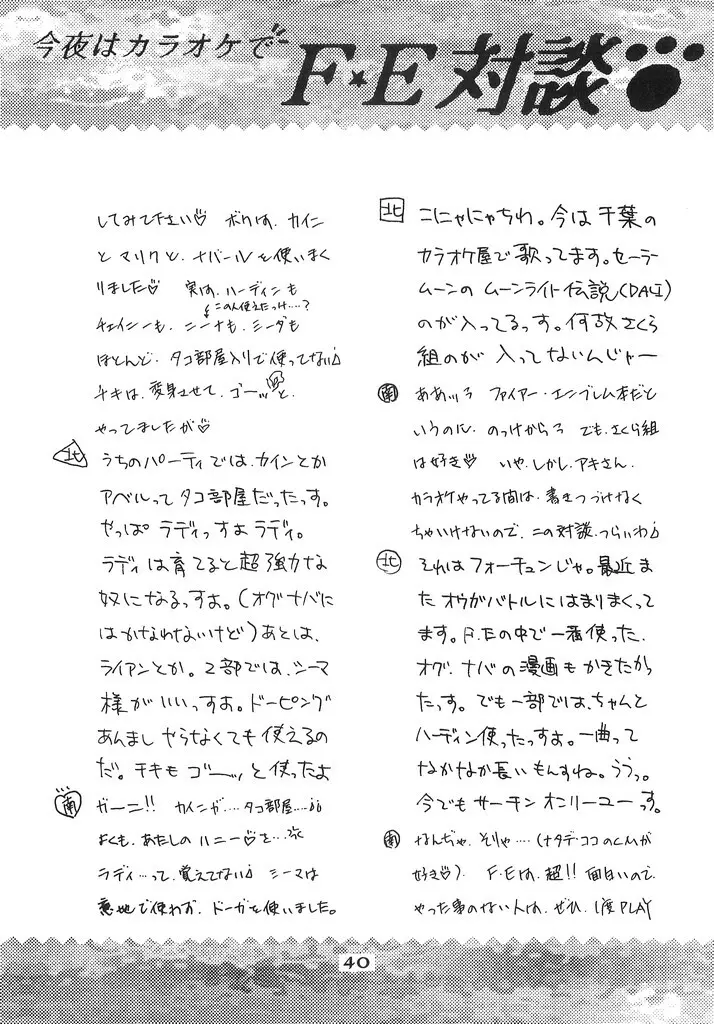 今夜はカラオケで
F★E対談
北 こにゃにゃちわ。今は千葉の
カラオケ屋で歌ってます。セーラー
ムーンのムーンライト伝説(DALI)
のが入ってるっす。何故さくら
組のが入ってないんじゃー
南 ああッろ ファイアー・エンブレム本だと
いうのに、のっけからろ でも、さくら組
は好き♡ いや、しかし、アキさん、
カラオケやってる間は、書きつづけなく
ちゃいけないので、この対談、つらいわ♪
北 それはフォーチュンじゃ。最近ま
たオウガバトルにはまりまくって
ます。F.Eの中で一番使った、
オグ、ナバの漫画もかきたかっ
たっす。でも一部では、ちゃんと
ハーディン使ったっすよ。一曲って
なかなか長いもんすね。うぅっ。
今でもサーチンオンリーユーっす。
南 なんぢゃ、そりゃ‥‥(ナタデ・ココのCMが
好き♡)。 F・Eは、超!!面白いので、
やった事のない人は、ぜひ、1度PLAY
してみて下さい♡ ボクは、カイン
とマリクと、ナバールを使いまく
りました♡ 実は、ハーディンも
この人使えたっけ‥‥?
チェイニーも、ニーナも、ミーダも
ほとんど、タコ部屋入りで使ってない♪
チキは、変身させて、ゴーッと、
やってましたが♡
北 うちのパーティでは、カインとか
アベルってタコ部屋だったっす。
やっぱラディっすよラディ。
ラディは育てると超強力な
奴になるっすよ。(オグナバに
はかなわないけど)あとは、
ライアンとか。2部では、シーマ
様がいいっすよ。ドーピング
あんましやらなくても使えるの
だ。チキもゴーッと使ったよ
南 ガーン!! カインが‥‥タコ部屋‥‥
よくも、あたしのハニー♡を‥‥
ラディ‥‥って、覚えてない♪ シーマは
意地で使わず、ドーガを使いました。
40